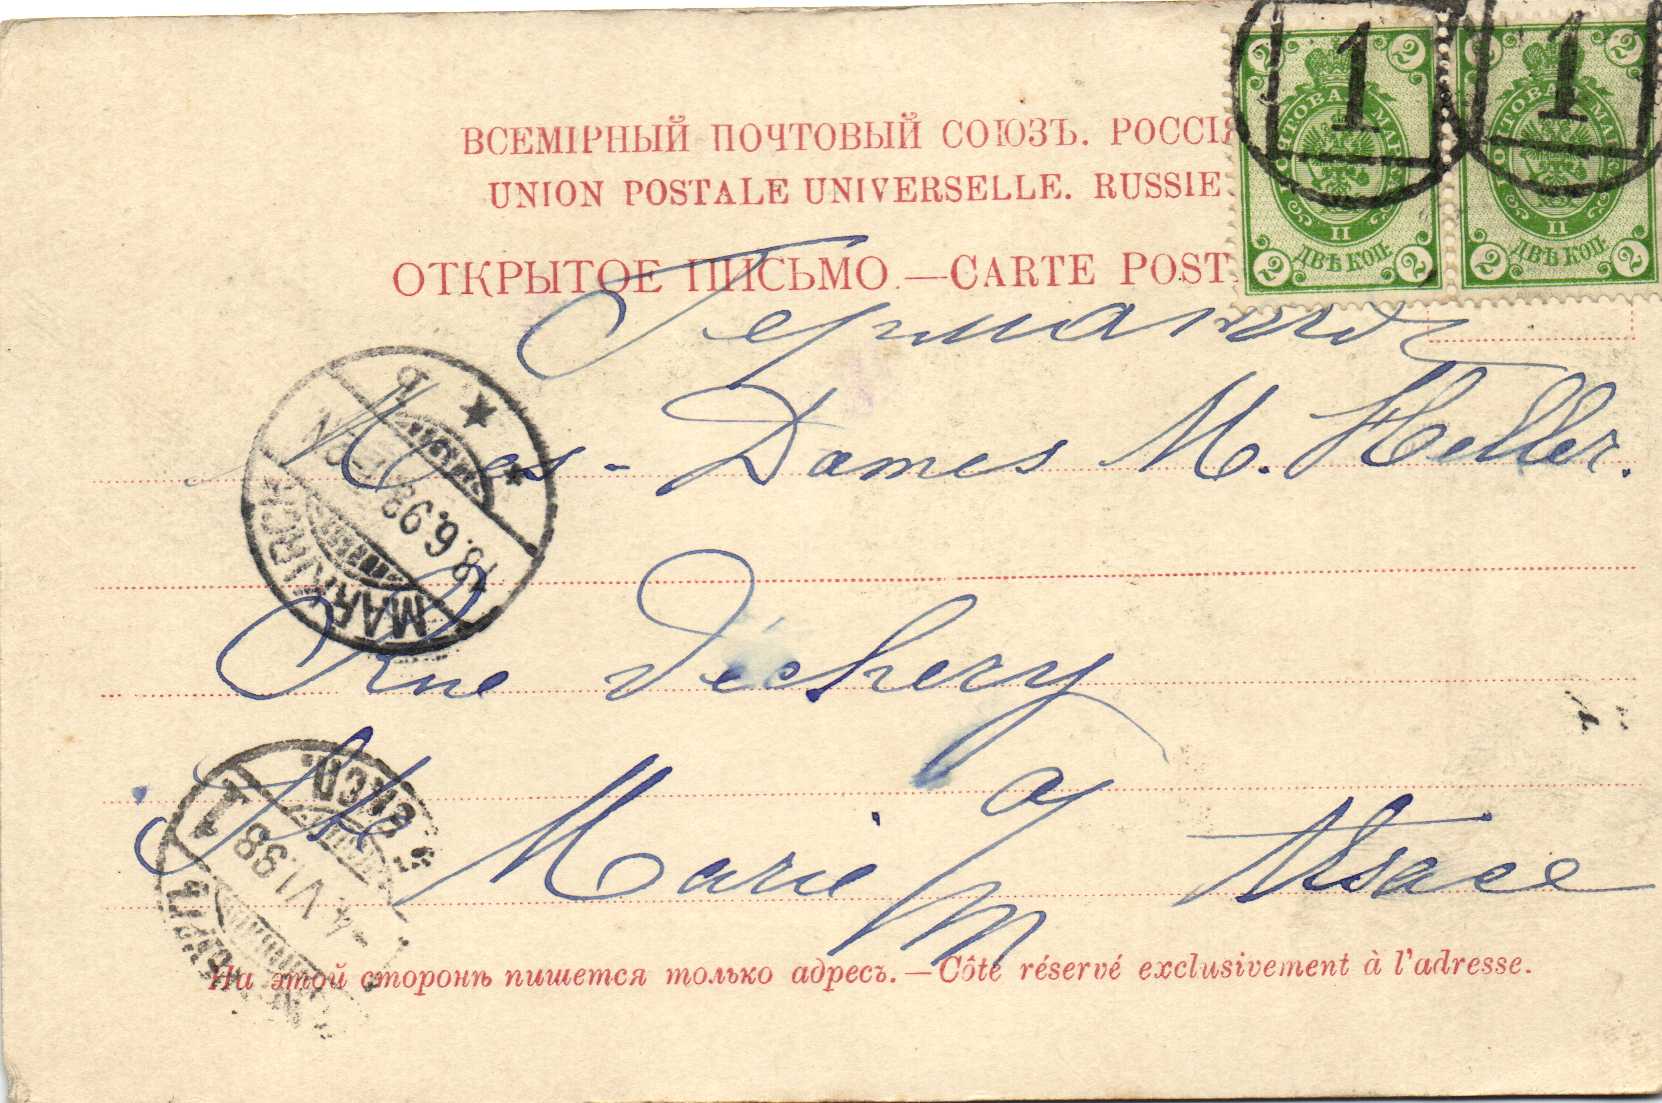 ВСЕМІРНЫЙ ПОЧТОВЫЙ СОЮЗЪ. РОССІЯ
UNION POSTALE UNIVERSELLE. RUSSIE
ОТКРЫТОЕ ПИСЬМО.—CARTE POST
2 2
ПОЧТОВАЯ МАРКА
II
ДВѢ КОП.
2 2
2 2
ПОЧТОВАЯ МАРКА
II
ДВѢ КОП.
2 2
1
1
Германія
Mes-Dames M. Heller.
Rue d'échery
Ste Marie a/m Alsace
MARKIRCH
18.6.98
4.VI.98
1 ЭКСП.
На этой сторонѣ пишется только адресъ.—Côté réservé exclusivement à l'adresse.